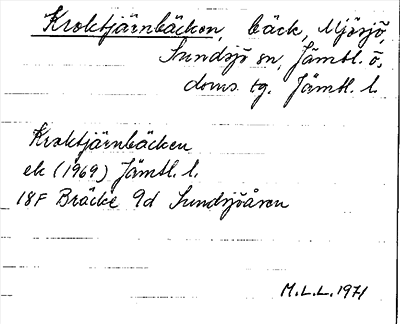 Kroktjärnbäcken, bäck, Mjösjö,
Sundsjö sn, Jämtl. ö.
doms. tg. Jämtl. l.
Kroktjärnbäcken
ek (1969) Jämtl. l.
18F Bräcke 9d Sundsjöåsen
M.L.L. 1971